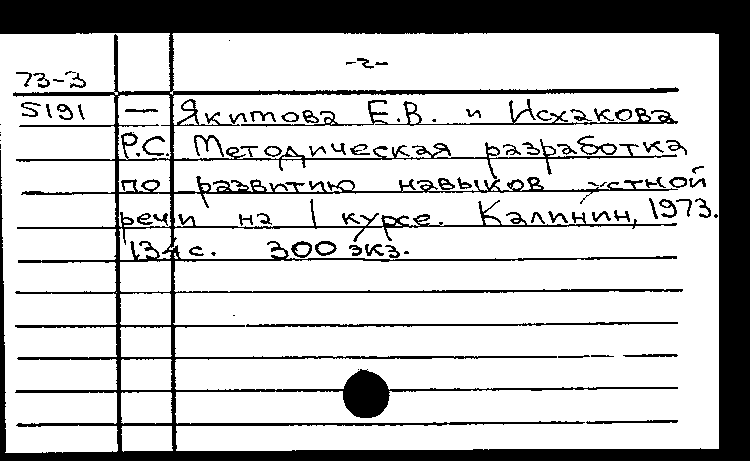 -2-
73-3
5191 — Якимова Е.В. и Исхакова
Р.С. Методическая разработка
по развитию навыков устной
речи на I курсе. Калинин, 1973.
134 с. 300 экз.